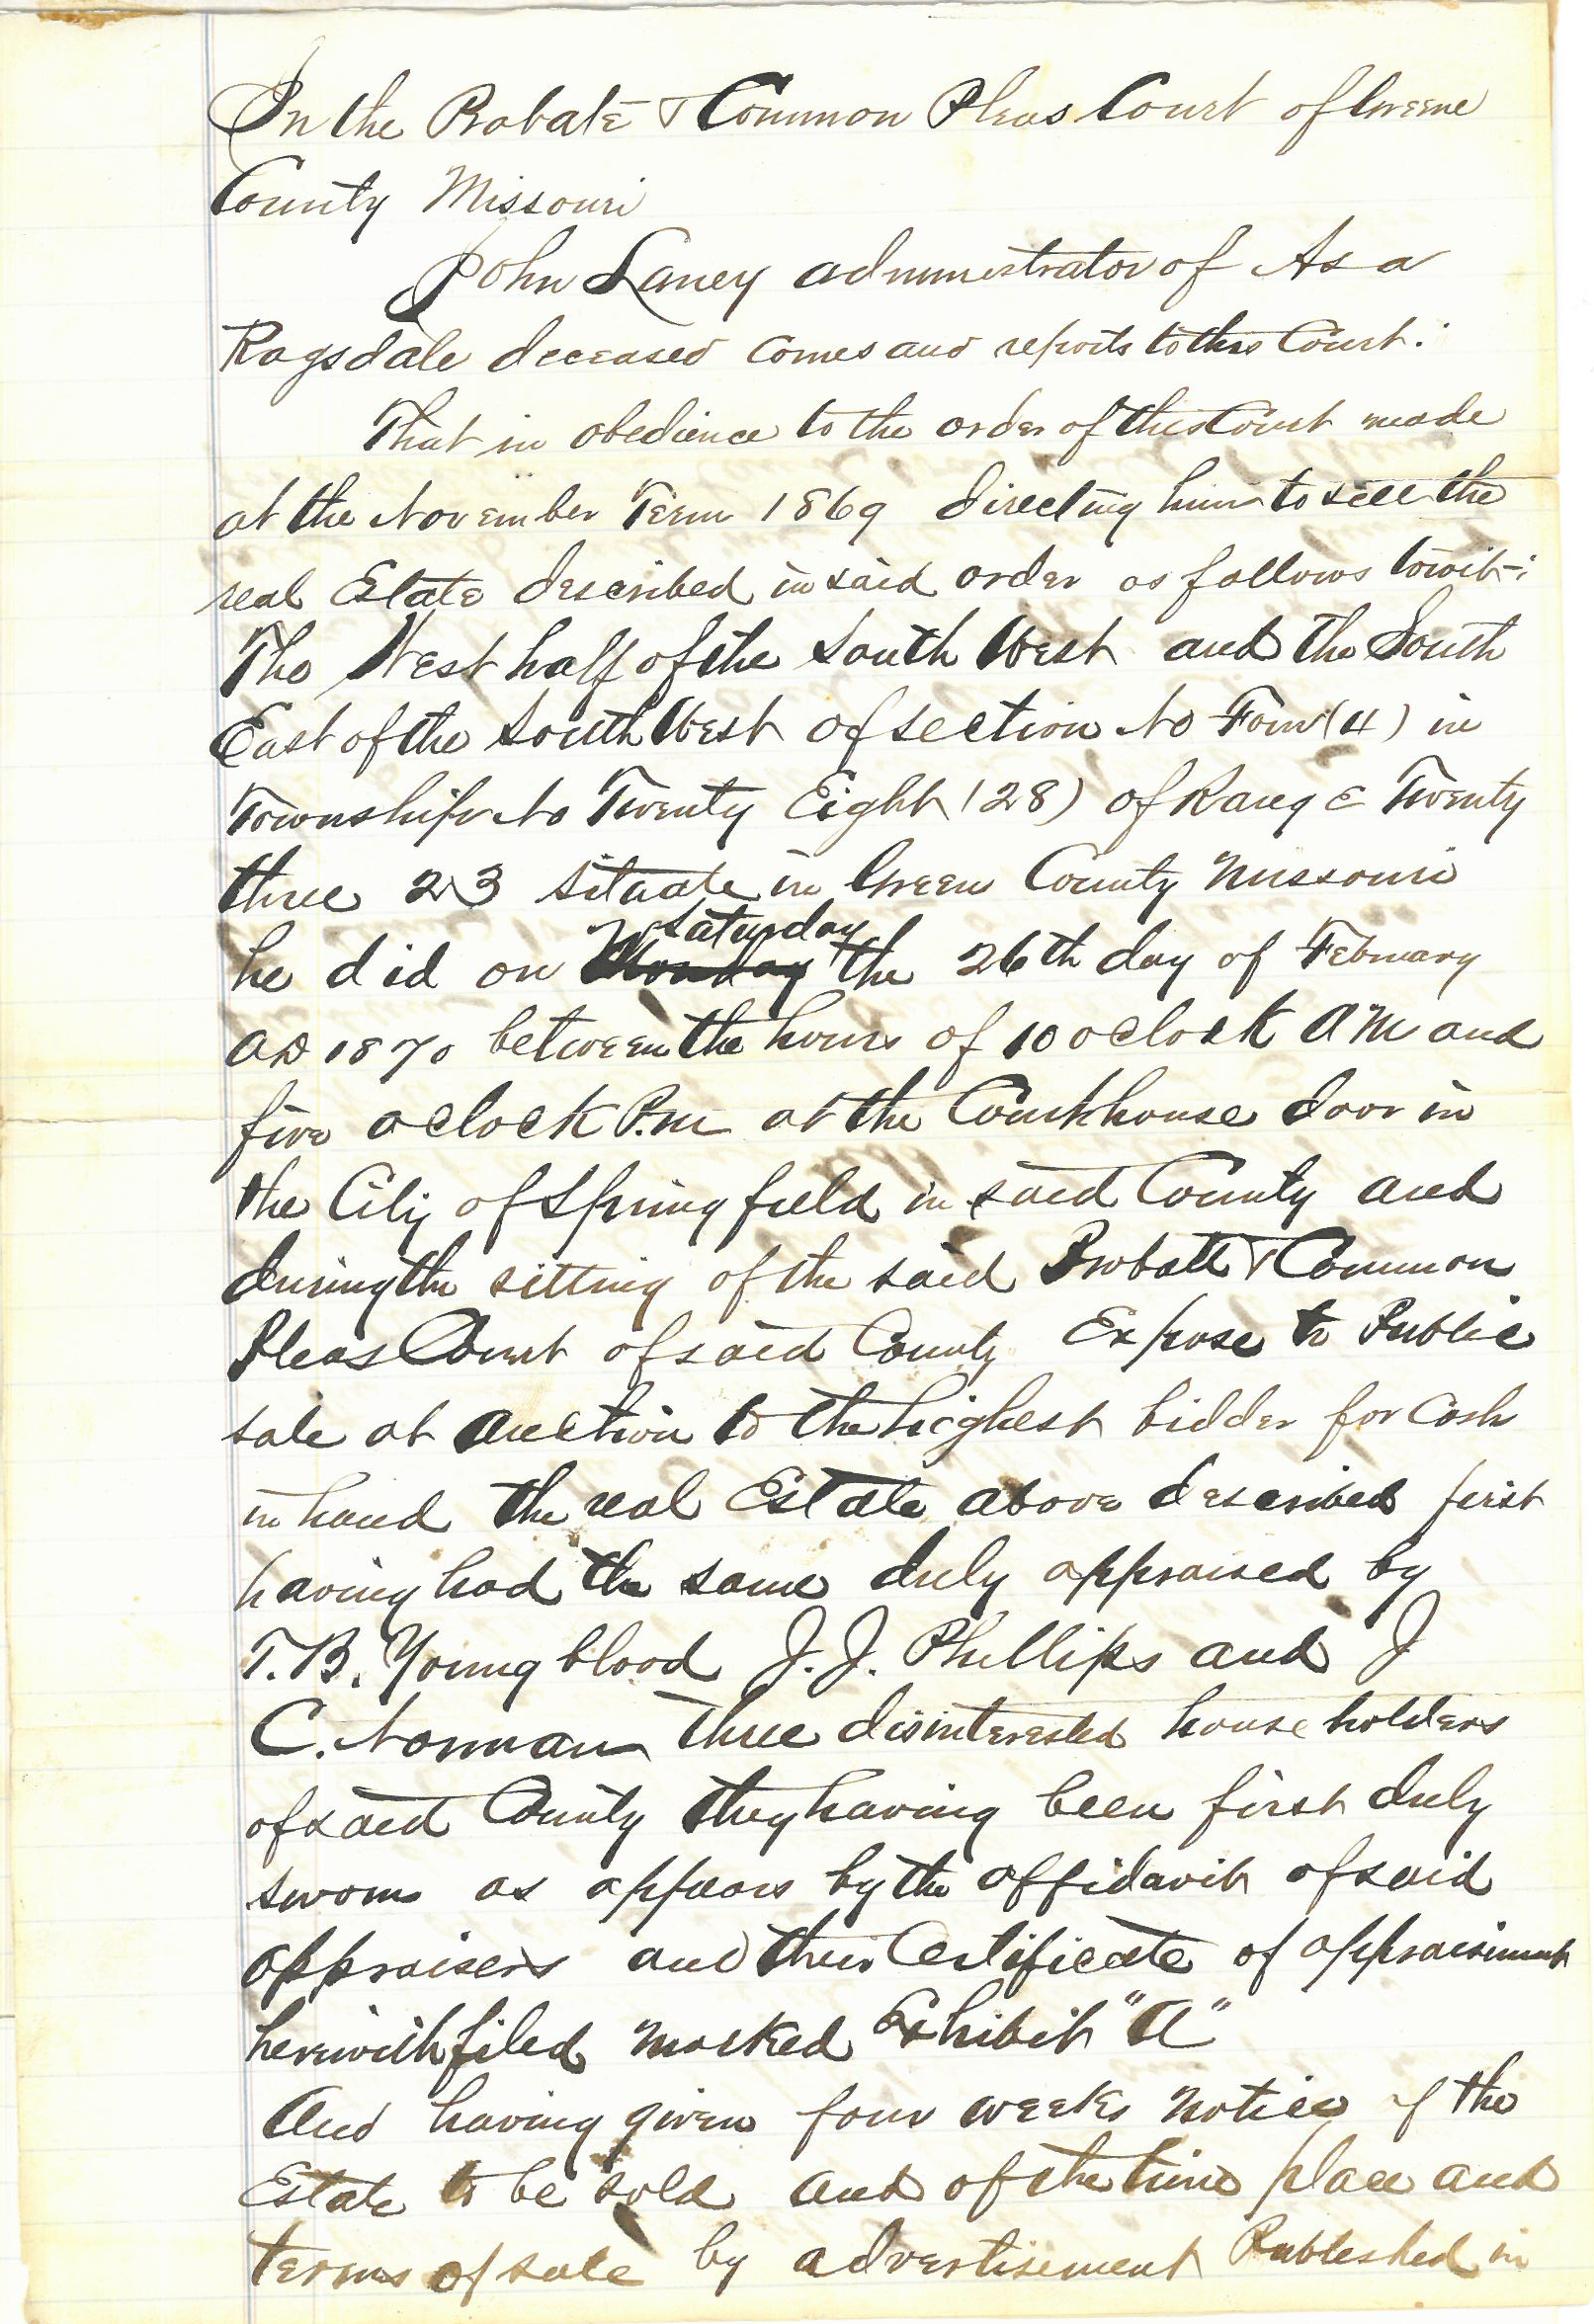 In the Probate & Common Pleas Court of Greene
County Missouri
John Laney administrator of Asa
Ragsdale deceased comes and reports to this Court:
That in obedience to the order of this Court made
at the November Term 1869 directing him to sell the
real Estate described in said order as follows towit:
The West half of the South West and the South
East of the South West of section No Four (4) in
Township No Twenty Eight (28) of Range Twenty
three 23 situate in Green County Missouri
he did on Monday Saturday the 26th day of February
AD 1870 between the hours of 10 oclock AM and
five oclock P.m at the Courthouse door in
the City of Springfield in said County and
during the sitting of the said Probate & Common
Pleas Court of said County Expose to Public
sale at auction to the highest bidder for Cash
in hand the real Estate above described first
having had the same duly appraised by
T.B. Youngblood J.J. Phillips and J
C. Norman three disinterested house holders
of said County they having been first duly
sworn as appears by the affidavit of said
appraisers and their Certificate of appraisiment
herewith filed marked Exhibit "A"
And having given four weeks notice of the
Estate to be sold and of the time place and
terms of sale by advertisement Published in